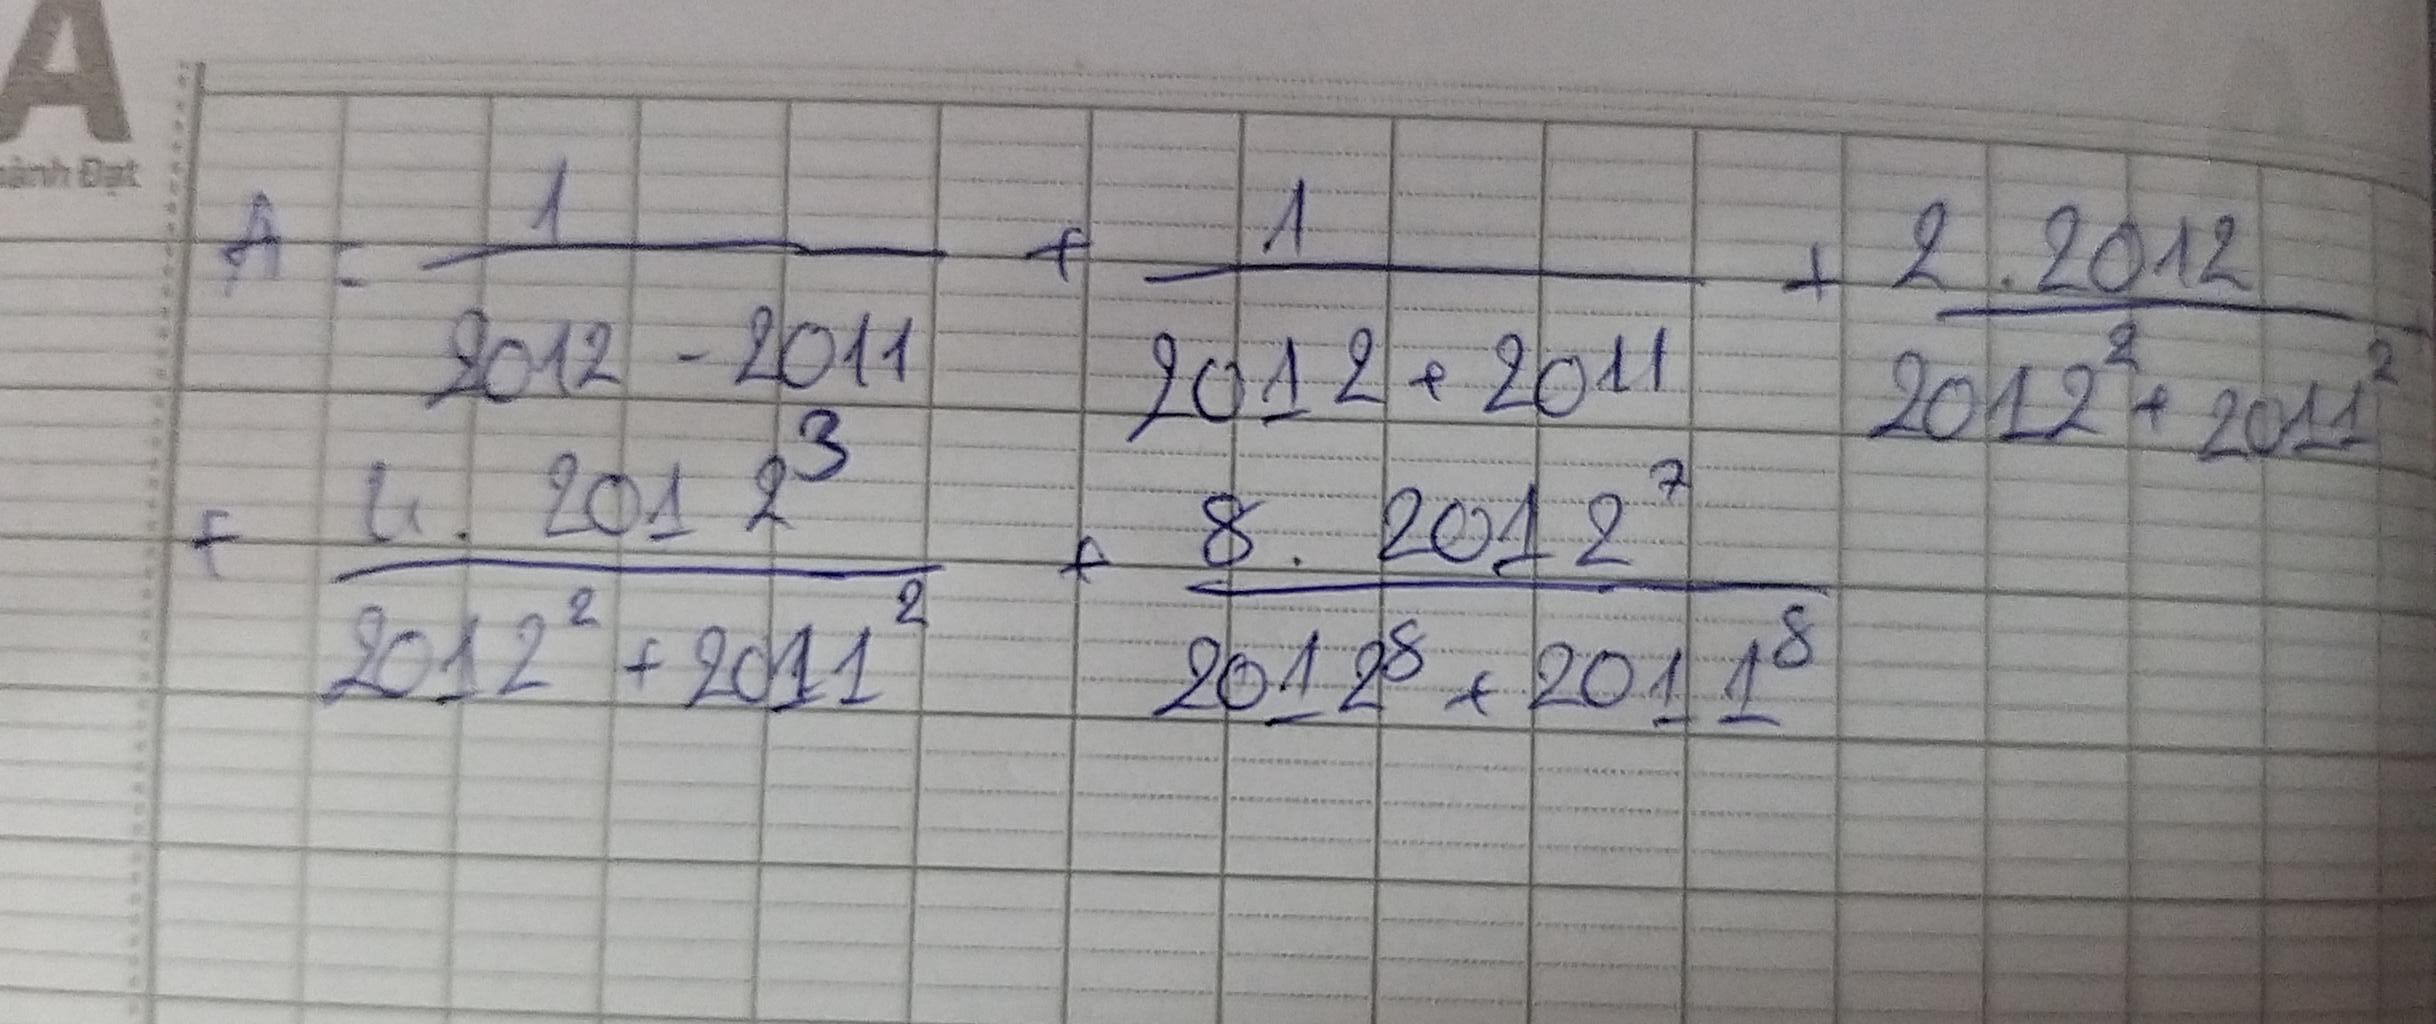 A
ành Đạt
A = \frac{1}{2012 - 2011} + \frac{1}{2012 + 2011} + \frac{2 . 2012}{2012^2 + 2011^2}
+ \frac{4 . 2012^3}{2012^2 + 2011^2} + \frac{8 . 2012^7}{2012^8 + 2011^8}